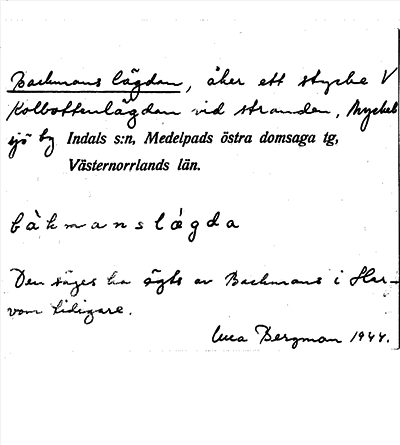 Backmans lägdan, åker ett stycke V
Kolbottenlägdan vid stranden, Myckel-
sjö by Indals s:n, Medelpads östra domsaga tg,
Västernorrlands län.
bàkmanslǽgda
Den säges ha ägts av Backmans i Har-
vom tidigare.
Bergman 1944.